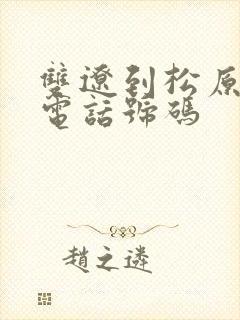 雙遼到松原
電話號碼
趙之遴